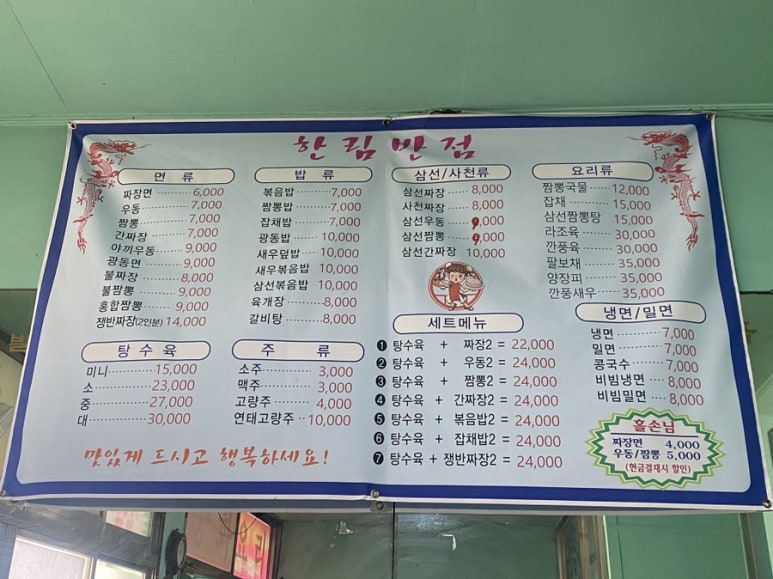 한림반점
면 류
짜장면 6,000
우동 7,000
짬뽕 7,000
간짜장 7,000
야끼우동 9,000
광동면 9,000
불짜장 8,000
불짬뽕 9,000
홍합짬뽕 9,000
쟁반짜장(2인분) 14,000
밥 류
볶음밥 7,000
짬뽕밥 7,000
잡채밥 7,000
광동밥 10,000
새우덮밥 10,000
새우볶음밥 10,000
삼선볶음밥 10,000
육개장 8,000
갈비탕 8,000
삼선/사천류
삼선짜장 8,000
사천짜장 8,000
삼선우동 9,000
삼선짬뽕 9,000
삼선간짜장 10,000
요리류
짬뽕국물 12,000
잡채 15,000
삼선짬뽕탕 15,000
라조육 30,000
깐풍육 30,000
팔보채 35,000
양장피 35,000
깐풍새우 35,000
탕 수 육
미니 15,000
소 23,000
중 27,000
대 30,000
주 류
소주 3,000
맥주 3,000
고량주 4,000
연태고량주 10,000
세트메뉴
❶ 탕수육 + 짜장2 = 22,000
❷ 탕수육 + 우동2 = 24,000
❸ 탕수육 + 짬뽕2 = 24,000
❹ 탕수육 + 간짜장2 = 24,000
❺ 탕수육 + 볶음밥2 = 24,000
❻ 탕수육 + 잡채밥2 = 24,000
❼ 탕수육 + 쟁반짜장2 = 24,000
냉면/밀면
냉면 7,000
밀면 7,000
콩국수 7,000
비빔냉면 8,000
비빔밀면 8,000
홀손님
짜장면 4,000
우동/짬뽕 5,000
(현금결재시 할인)
맛있게 드시고 행복하세요!